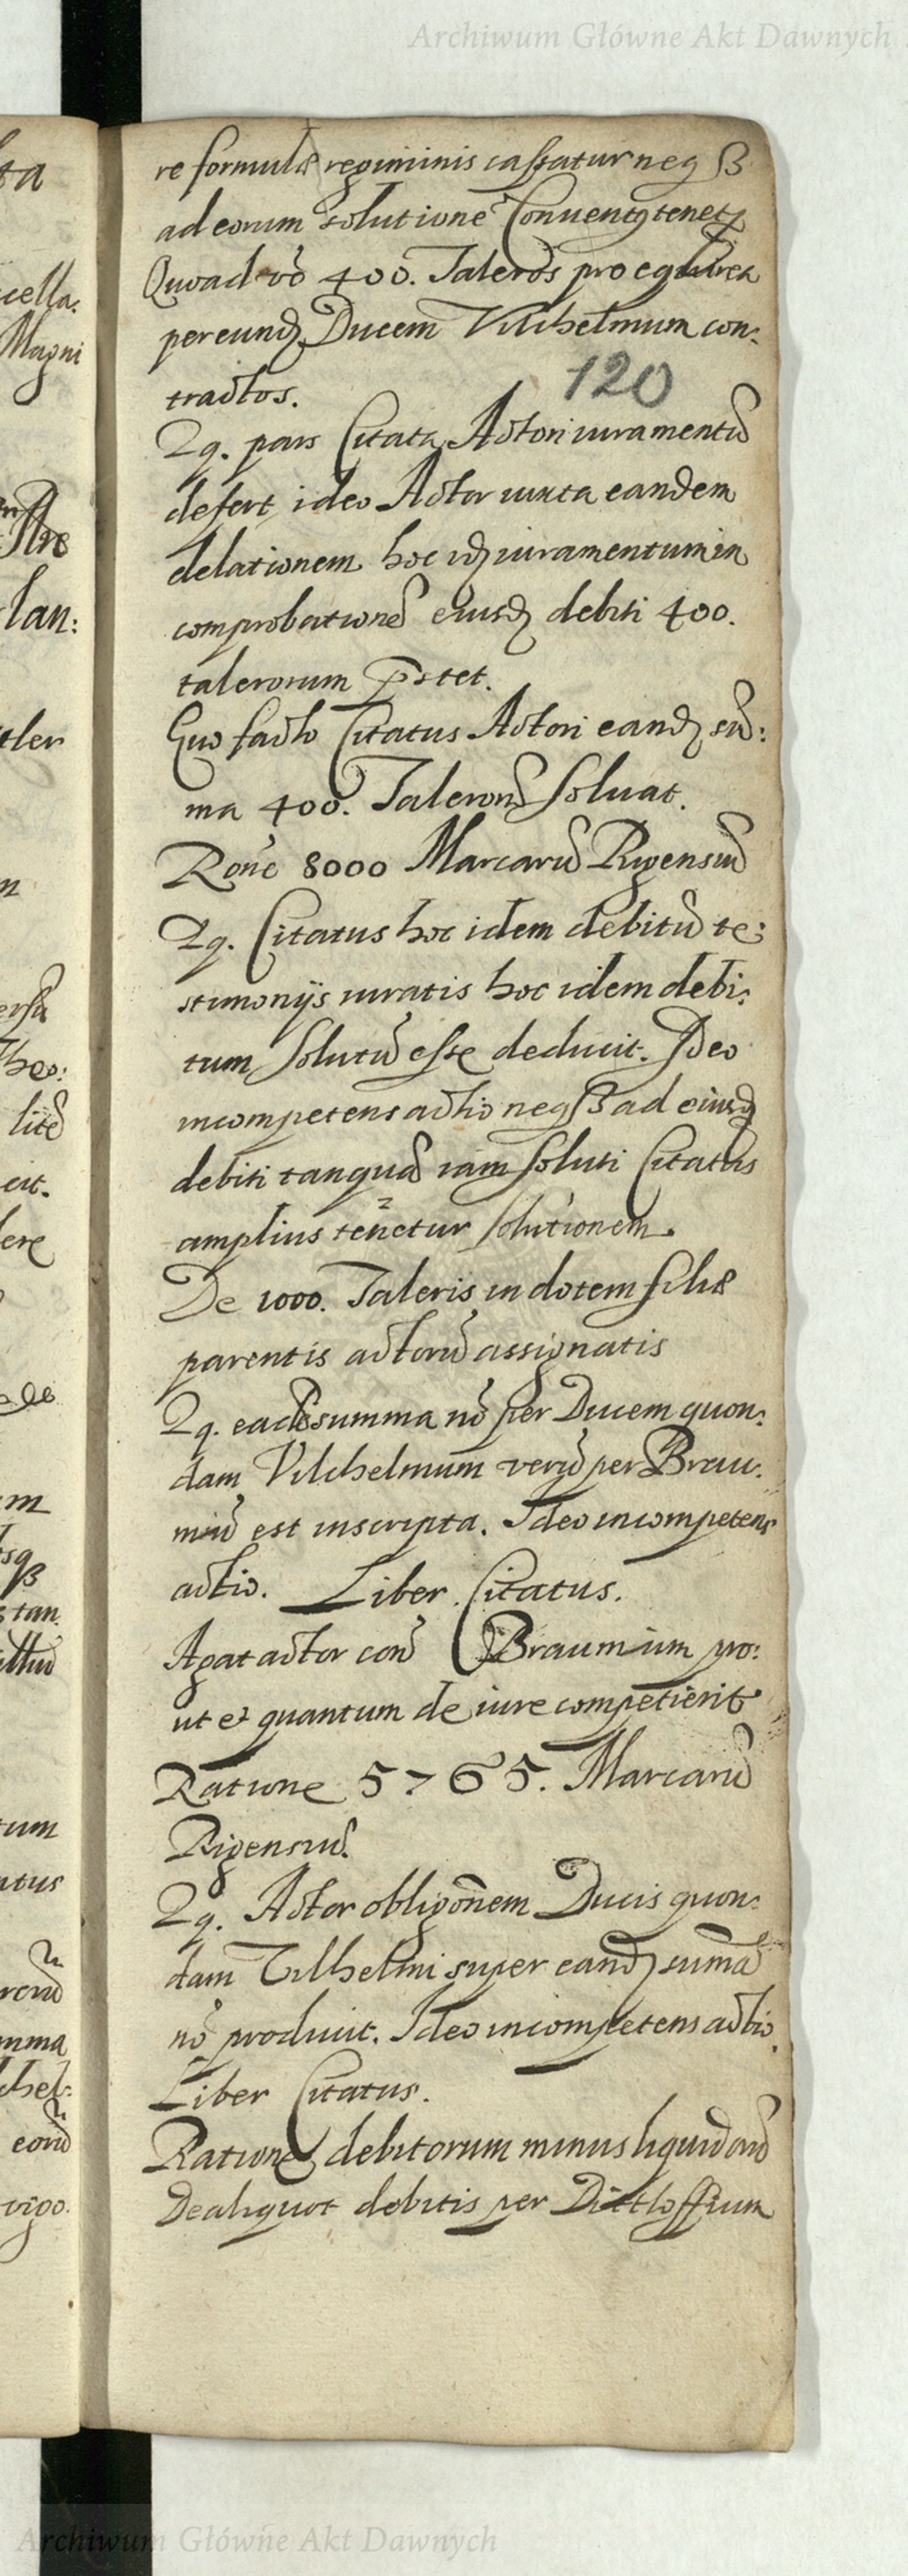 Archiwum Główne Akt Dawnych
re formulæ regiminis cassatur neq ß
ad eorum solutionē Conuentꝯ tenetꝫ
Quoad vō 400. Taleros pro equirea
per eundꝫ Ducem Vilchelmum con:
tractos.
120
Qq. pars Citata Actori iuramentū
defert, ideo Actor iuxta eandem
delationem hoc idꝫ iuramentum in
comprobationē eiusdꝫ debiti 400.
talerorum pstet.
Quo facto Citatus Actori eandꝫ sū:
ma 400. Talerorū soluat.
Ronē 8000 Marcarū Rigensiū
Qq. Citatus hoc idem debitū te:
stimonijs iuratis hoc idem debi:
tum solutū esse deducit. Ideo
incompetens actio neq ß ad eiusdꝫ
debiti tanquā iam soluti Citatus
amplius tenetur solutionem.
De 1000. Taleris in dotem filiæ
parentis actorū assignatis
Qq. eadē summa nō per Ducem quon:
dam Vilchelmum verū per Brau:
miū est inscripta. Ideo incompetens
actio. Liber Citatus.
Agat actor con̄ Braumium pro:
ut et quantum de iure competierit
Ratione 5765. Marcarū
Rigensiū.
Qq. Actor obligōnem Ducis quon:
dam Vilhelmi super eandꝫ summā
nō producit. Ideo incompetens actio.
Liber Citatus.
Ratione debitorum minus liquidorū
De aliquot debitis per Dittloffium
Archiwum Główne Akt Dawnych